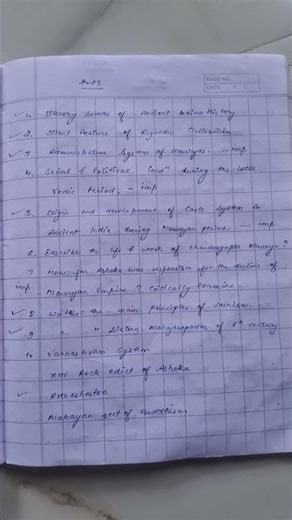 PAGE NO.
DATE
✓ 1. Literary Sources of Ancient Indian History
✓ 2. Silent Feature of Rigvedic Civilization
✓ 3. Administrative System of Mauryas. - imp
4. Social & Political Condn during the later
Vedic Period. - imp
✓ 5. Origin and development of Caste System in
Ancient India during Mauryan period. - imp
6. Describe the life & work of Chandragupta Maurya?
7 How far Ashoka was responsible for the decline of
imp Mauryan Empire? Critically Examine.
✓ 8 Write the main principles of Jainism.
✓ 9 " " Sixteen Mahajanapadas of 6th century
10 Varnashram System
XIII Rock edict of Ashoka
✓ Arthashastra
Mahayan sect of Buddhism